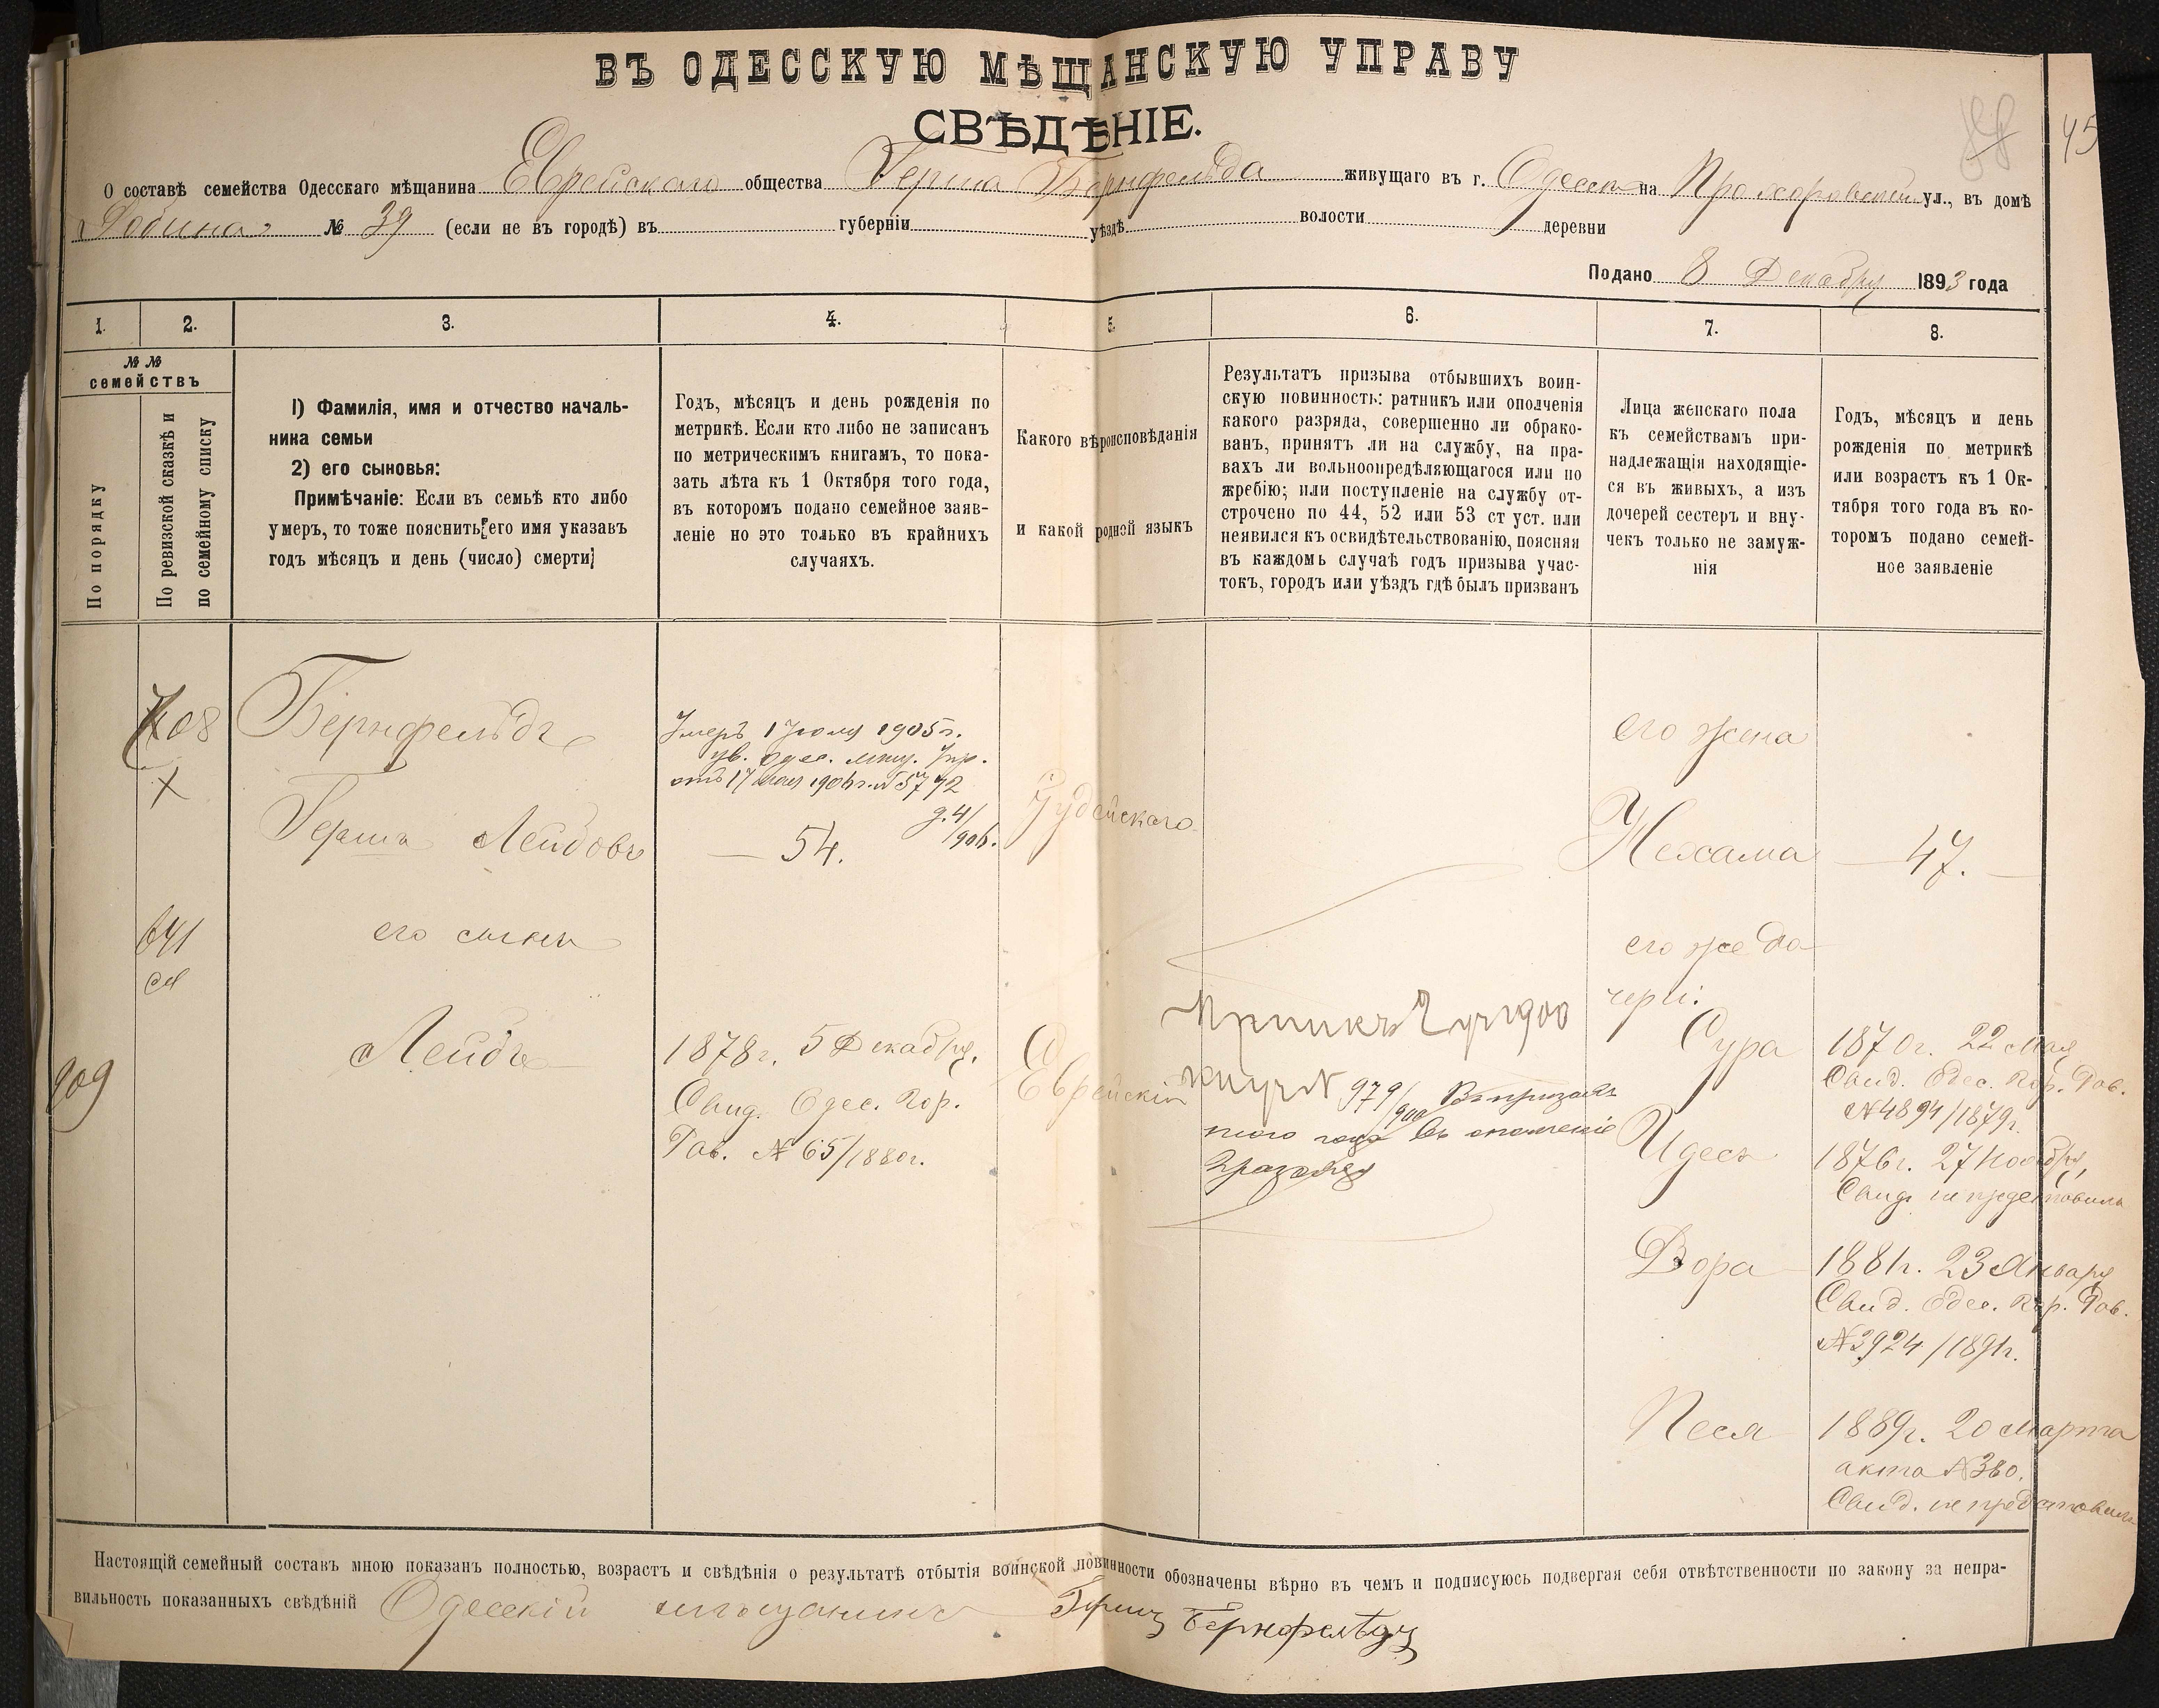 ВЪ ОДЕССКУЮ МѢЩАНСКУЮ УПРАВУ
СВѢДѢНІЕ.
45
О составѣ семейства Одесскаго мѣщанина Еврейскаго общества Герша Бернфельда живущаго въ г. Одессѣ на Прохоровской ул., въ домѣ
№ 39 (если не въ городѣ) въ губерніи уѣздѣ волости деревни
Подано 8 Декабря 1893 года
1. 2. 3. 4. 5. 6. 7. 8.
№ №
семействъ
По порядку
По ревизской сказкѣ и
по семейному списку
1) Фамилія, имя и отчество началь-
ника семьи
2) его сыновья:
Примѣчаніе: Если въ семьѣ кто либо
умеръ, то тоже пояснить его имя указавъ
годъ мѣсяцъ и день (число) смерти
Годъ, мѣсяцъ и день рожденія по
метрикѣ. Если кто либо не записанъ
по метрическимъ книгамъ, то пока-
зать лѣта къ 1 Октября того года,
въ которомъ подано семейное заяв-
леніе но это только въ крайнихъ
случаяхъ.
Какого вѣроисповѣданія
и какой родной языкъ
Результатъ призыва отбывшихъ воин-
скую повинность: ратникъ или ополченія
какого разряда, совершенно ли обрако-
ванъ, принятъ ли на службу, на пра-
вахъ ли вольноопредѣляющагося или по
жребію; или поступленіе на службу от-
строчено по 44, 52 или 53 ст уст. или
неявился къ освидѣтельствованію, поясняя
въ каждомъ случаѣ годъ призыва учас-
токъ, городъ или уѣздъ гдѣ былъ призванъ
Лица женскаго пола
къ семействамъ при-
надлежащія находящіе-
ся въ живыхъ, а изъ
дочерей сестеръ и вну-
чекъ только не замуж-
нія
Годъ, мѣсяцъ и день
рожденія по метрикѣ
или возрастъ къ 1 Ок-
тября того года въ ко-
торомъ подано семей-
ное заявленіе
708
Х
Бернфельдъ
Герша Лейбовъ
Умеръ 1 Іюля 1905г.
ув. Одес. мѣщ. Упр.
отъ 17 1906г. № 5772
д. 4/906.
54.
Іудейскаго
его жена
Нехама
47.
641
его сынъ
его же до
чери:
909
Лейбъ
1878г. 5 Декабря.
Свид. Одес. Гор.
Рав. № 65/1880г.
Еврейскій
1900
№ 979/900 Въ призывъ
того года въ ополченіе
2 разряда
Сура
1870г. 22 Мая
Свид. Одес. Гор. Рав.
№ 4894/1879г.
Идесъ
1876г. 27 Ноября,
Свид. не представилъ
Двора
1881г. 23 Января
Свид. Одес. Гор. Рав.
№ 3924/1891г.
Песя
1889г. 20 Марта
акта № 380.
Свид. не представилъ
Настоящій семейный составъ мною показанъ полностью, возрастъ и свѣдѣнія о результатѣ отбытія воинской повинности обозначены вѣрно въ чемъ и подписуюсь подвергая себя отвѣтственности по закону за непра-
вильность показанныхъ свѣдѣній Одесскій мѣщанинъ Гершъ Бернфельдъ